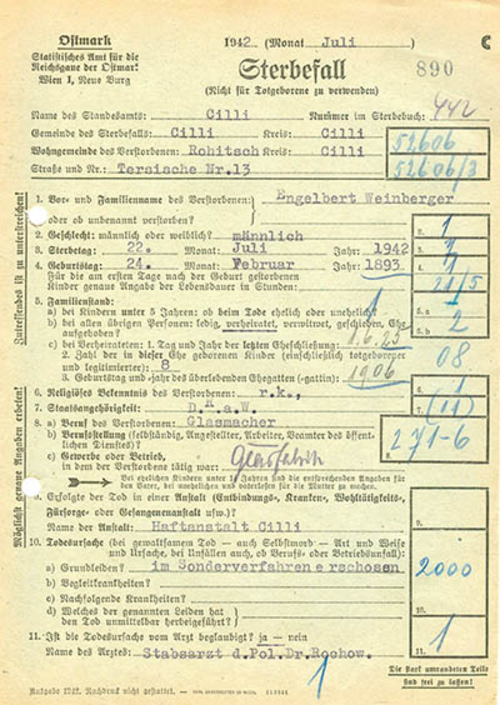 Ostmark
Statistisches Amt für die
Reichsgaue der Ostmark
Wien I, Neue Burg
1942 (Monat Juli)
C
Sterbefall
890
(Nicht für Totgeborene zu verwenden)
Name des Standesamts: Cilli Nummer im Sterbebuch: 442
Gemeinde des Sterbefalls: Cilli Kreis: Cilli
52606
Wohngemeinde des Verstorbenen: Rohitsch Kreis: Cilli
Straße und Nr.: Tersische Nr.13
52606/3
Zutreffendes ist zu unterstreichen!
Möglichst genaue Angaben erbeten!
1. Vor- und Familienname des Verstorbenen: Engelbert Weinberger
oder ob unbenannt verstorben?
2. Geschlecht: männlich oder weiblich? männlich
2. 1
3. Sterbetag: 22. Monat: Juli Jahr: 1942
3.
4. Geburtstag: 24. Monat: Februar Jahr: 1893
4.
Für die am ersten Tage nach der Geburt gestorbenen
Kinder genaue Angabe der Lebensdauer in Stunden:
5. Familienstand:
a) bei Kindern unter 5 Jahren: ob beim Tode ehelich oder unehelich?
1
5. a
b) bei allen übrigen Personen: ledig, verheiratet, verwitwet, geschieden, Ehe
aufgehoben?
5. b
2
c) bei Verheirateten: 1. Tag und Jahr der letzten Eheschließung: 1.6.23
2. Zahl der in dieser Ehe geborenen Kinder (einschließlich totgeborener
und legitimierter): 8
08
3. Geburtstag und -jahr des überlebenden Ehegatten (-gattin): 1906
6. Religiöses Bekenntnis des Verstorbenen: r.k.,
6. 1
7. Staatsangehörigkeit: D.R.a.W.
7. (11)
8. a) Beruf des Verstorbenen: Glasmacher
b) Berufsstellung (selbständig, Angestellter, Arbeiter, Beamter des öffent-
lichen Dienstes)?
8.
271-6
c) Gewerbe oder Betrieb,
in dem der Verstorbene tätig war: Glasfabrik
Bei ehelichen Kindern unter 14 Jahren sind die entsprechenden Angaben für
den Vater, bei unehelichen und vaterlosen für die Mutter zu machen.
9. Erfolgte der Tod in einer Anstalt (Entbindungs-, Kranken-, Wohltätigkeits-,
Fürsorge- oder Gefangenenanstalt usw.)?
9.
Name der Anstalt: Haftanstalt Cilli
10. Todesursache (bei gewaltsamem Tod — auch Selbstmord — Art und Weise
und Ursache, bei Unfällen auch, ob Berufs- oder Betriebsunfall):
a) Grundleiden? im Sonderverfahren e rschosen
2000
b) Begleitkrankheiten?
c) Nachfolgende Krankheiten?
d) Welches der genannten Leiden hat
den Tod unmittelbar herbeigeführt?
10.
11. Ist die Todesursache vom Arzt beglaubigt? ja — nein
1
Name des Arztes: Stabsarzt d.Pol.Dr.Rochow.
11.
1
Die stark umrandeten Teile
sind frei zu lassen!
Ausgabe 1942. Nachdruck nicht gestattet.